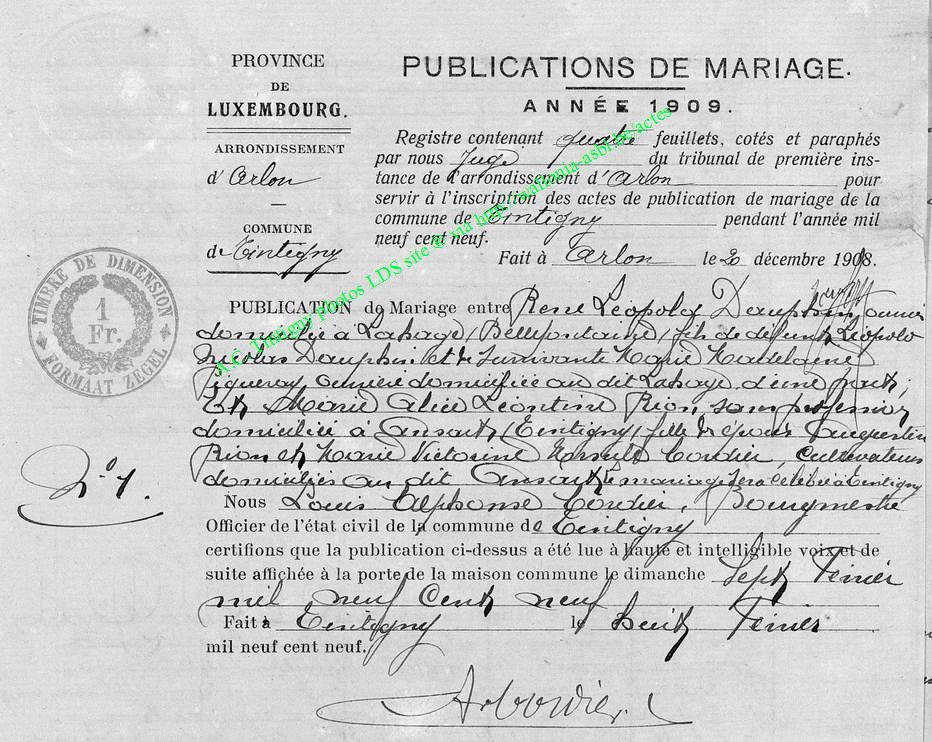 PROVINCE
DE
LUXEMBOURG.
ARRONDISSEMENT
d'Arlon
COMMUNE
de Tintigny
PUBLICATIONS DE MARIAGE.
ANNÉE 1909.
Registre contenant quatre feuillets, cotés et paraphés
par nous Juge du tribunal de première ins-
tance de l'arrondissement d'Arlon pour
servir à l'inscription des actes de publication de mariage de la
commune de Tintigny pendant l'année mil
neuf cent neuf.
Fait à Arlon le 20 décembre 1908.
A.C. Tintigny photos LDS site
TIMBRE DE DIMENSION
1
Fr.
FORMAAT ZEGEL
N° 1.
PUBLICATION de Mariage entre René Léopold Dauphin, ouvrier
domicilié à Lahage (Bellefontaine) fils de défunt Léopold
Nicolas Dauphin et de survivante Marie Madelaine
Pigueray, ouvrière domiciliée au dit Lahage d'une part;
Et Marie Alice Léontine Rion, sans profession
domiciliée à Ansart (Tintigny) fille de époux Augustin
Rion et Marie Victorine Cordier, cultivateurs
domiciliés au dit Ansart le mariage sera célébré à Tintigny
Nous Louis Alphonse Cordier, Bourgmestre
Officier de l'état civil de la commune de Tintigny
certifions que la publication ci-dessus a été lue à haute et intelligible voix et de
suite affichée à la porte de la maison commune le dimanche Sept Février
mil neuf cent neuf
Fait à Tintigny le huit Février
mil neuf cent neuf.